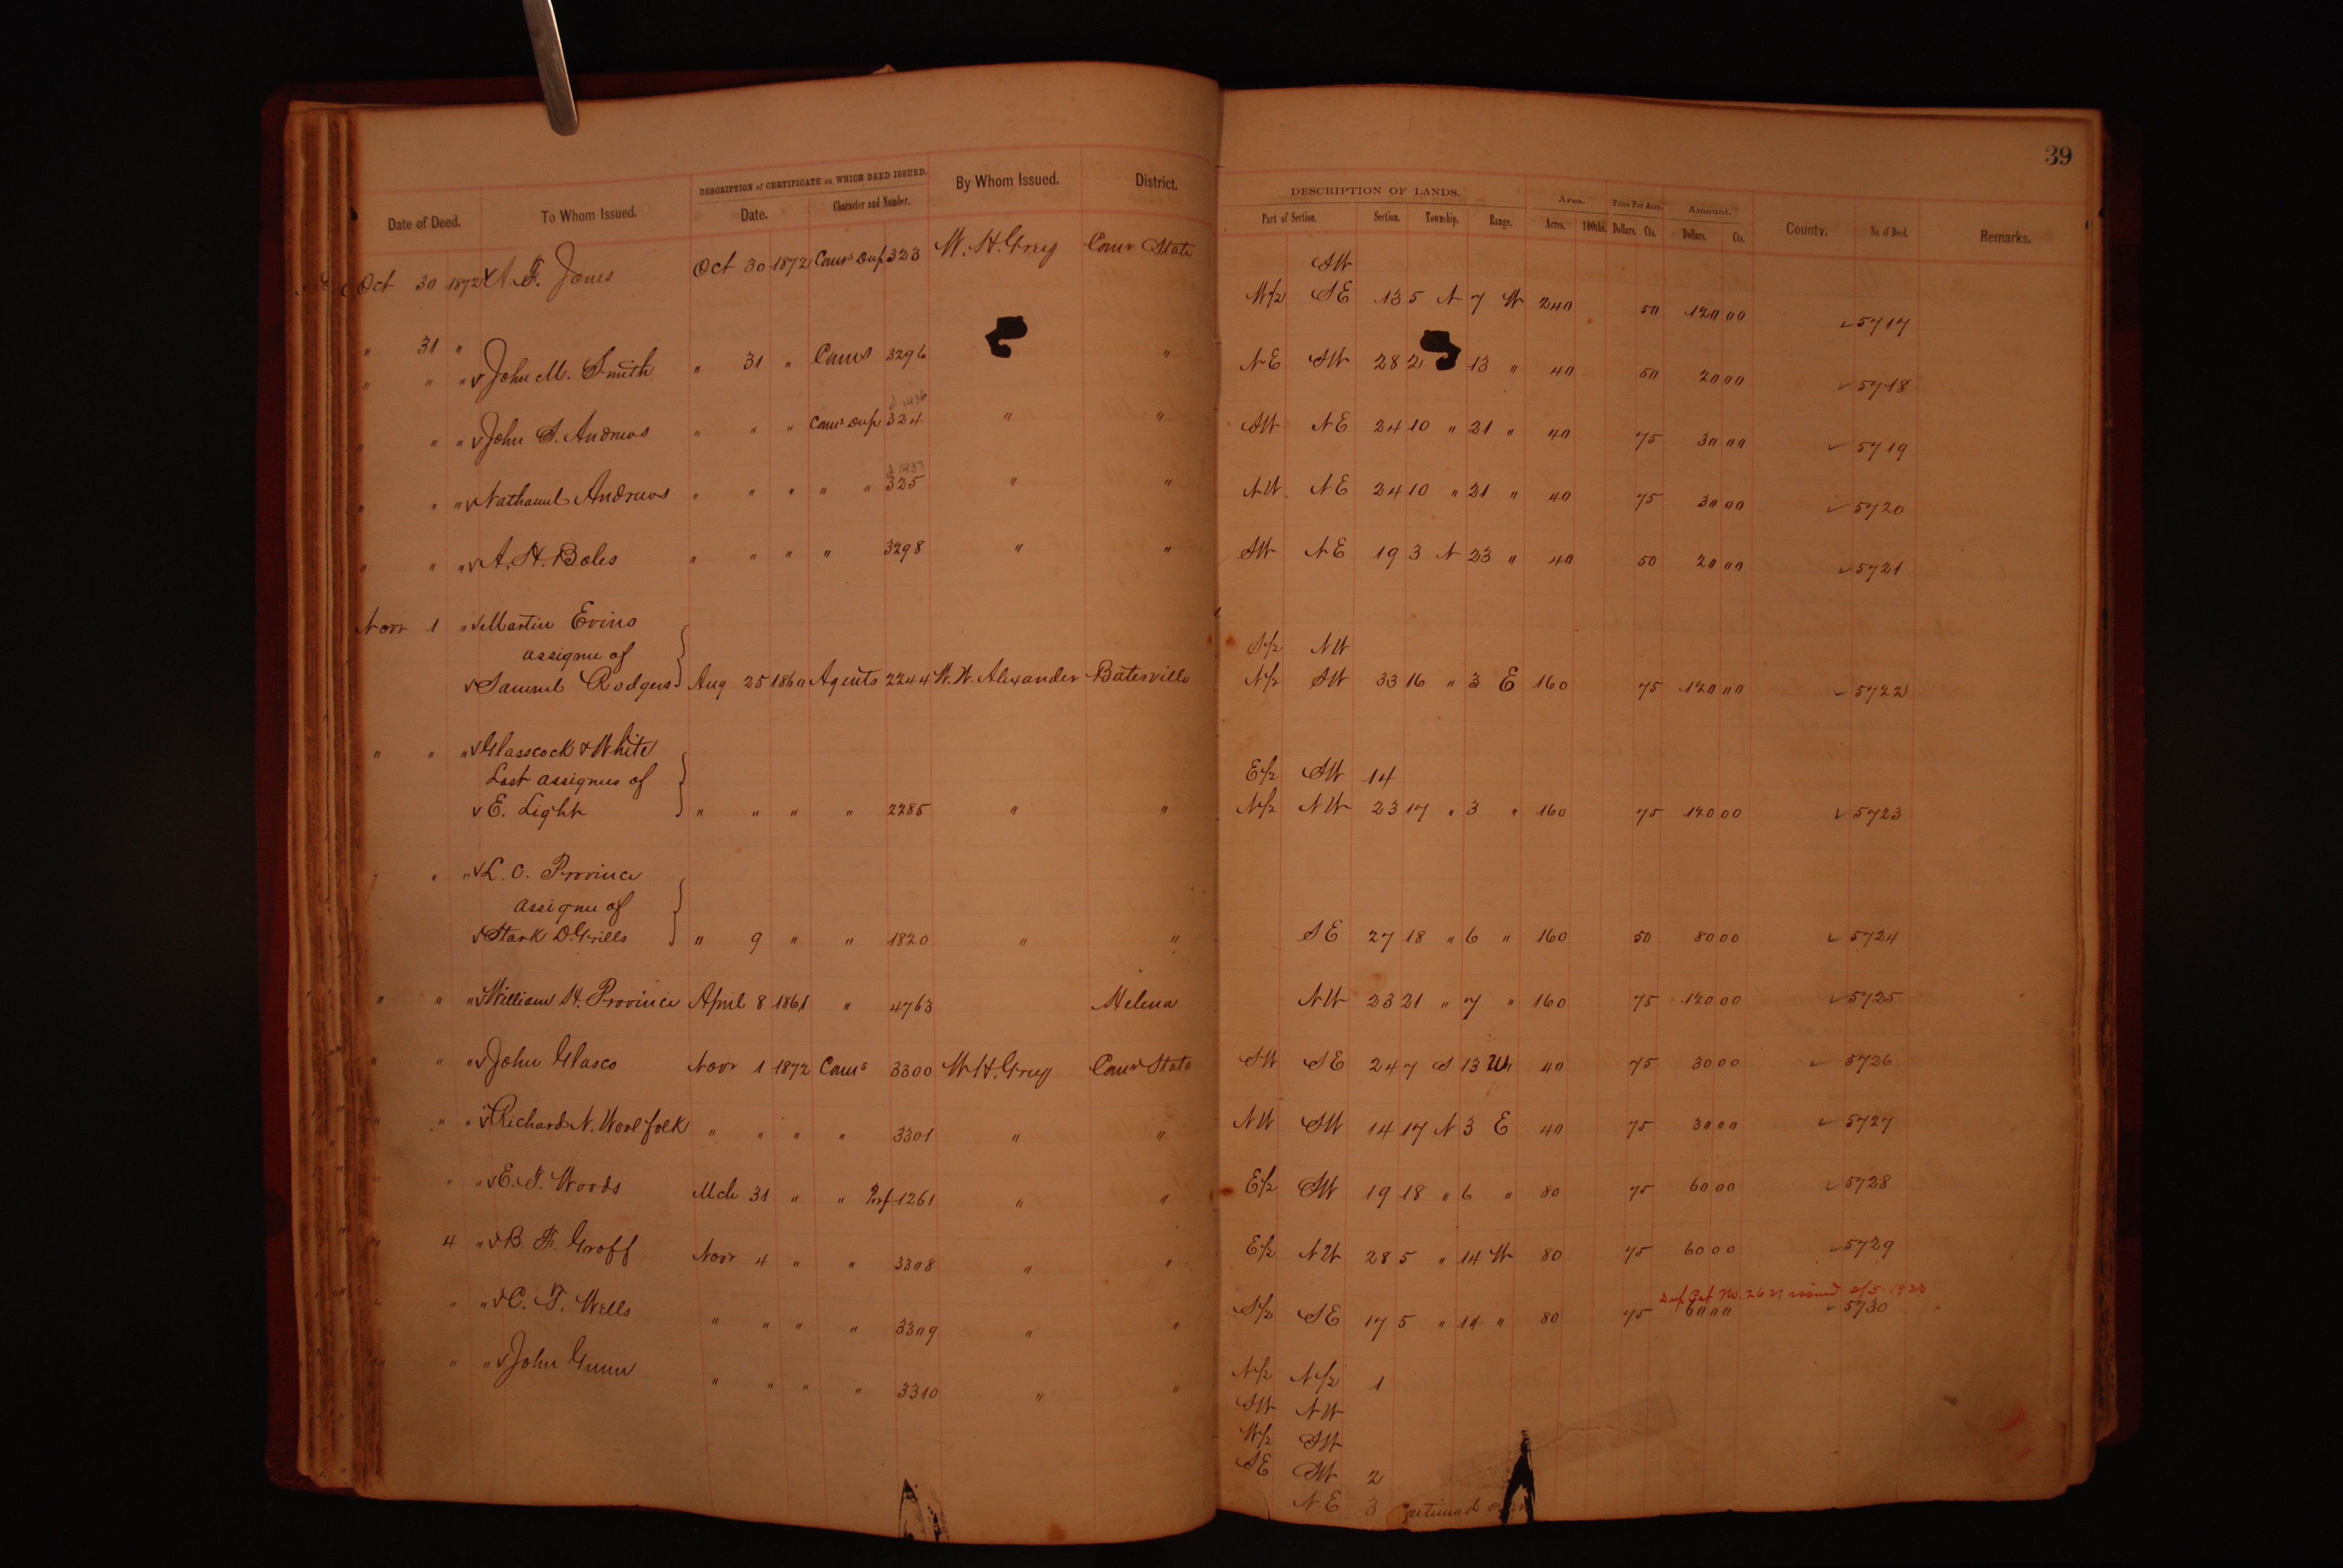 39
DESCRIPTION of CERTIFICATE on WHICH DEED ISSUED. By Whom Issued. District. DESCRIPTION OF LANDS. Area. Price Per Acre. Amount. County. No. of Deed. Remarks.
Date of Deed. To Whom Issued. Date. Character and Number. Part of Section. Section. Township. Range. Acres. 100ths. Dollars. Cts. Dollars. Cts.
SW
Oct 30 1872 A. F. Jones Oct 30 1872 Coms Dup 323 W. H. Grey Comr State W/2 SE 13 5 N 7 W 240 50 120 00 5717
" 31 "
" " " John M. Smith " 31 " Coms 3296 " NE SW 28 2 13 " 40 50 20 00 5718
1436
" " " John S. Andrews " " " Coms Dup 324 " " SW NE 24 10 " 21 " 40 75 30 00 5719
1437
" " " Nathanul Andrews " " " " " 325 " " NW NE 24 10 " 21 " 40 75 30 00 5720
" " " A. H. Boles " " " " 3298 " " SW NE 19 3 N 23 " 40 50 20 00 5721
Novr 1 " Martin Evins
assignee of S/2 NW
Samuel Rodgers Aug 25 1860 Agents 2244 W. W. Alexander Batesville N/2 SW 33 16 " 3 E 160 75 120 00 5722
" " " Glasscock & White
Last assignees of E/2 SW 14
E. Light " " " " 2285 " " N/2 NW 23 17 " 3 " 160 75 120 00 5723
" " L. C. Province
assignee of
Stark D. Grills " 9 " " 1820 " " SE 27 18 " 6 " 160 50 80 00 5724
" " " William H. Province April 8 1861 " 4763 Helena NW 23 21 " 7 " 160 75 120 00 5725
" " " John Glasco Novr 1 1872 Coms 3300 W. H. Grey Comr State SW SE 24 7 S 13 W 40 75 30 00 5726
" " " Richard N. Woolfolk " " " " 3301 " " NW SW 14 17 N 3 E 40 75 30 00 5727
" " " E. T. Woods Mch 31 " " Prf 1261 " " E/2 SW 19 18 " 6 " 80 75 60 00 5728
4 " B. F. Groff Novr 4 " " 3308 " " E/2 NW 28 5 " 14 W 80 75 60 00 5729
Dup Pat No. 2621 issued 2/5-1920
" " C. T. Wells " " " " 3309 " " S/2 SE 17 5 " 14 " 80 75 60 00 5730
" " John Gunn " " " " 3310 " " N/2 N/2 1
SW NW
W/2 SW
SE SW 2
NE 3 Continued over